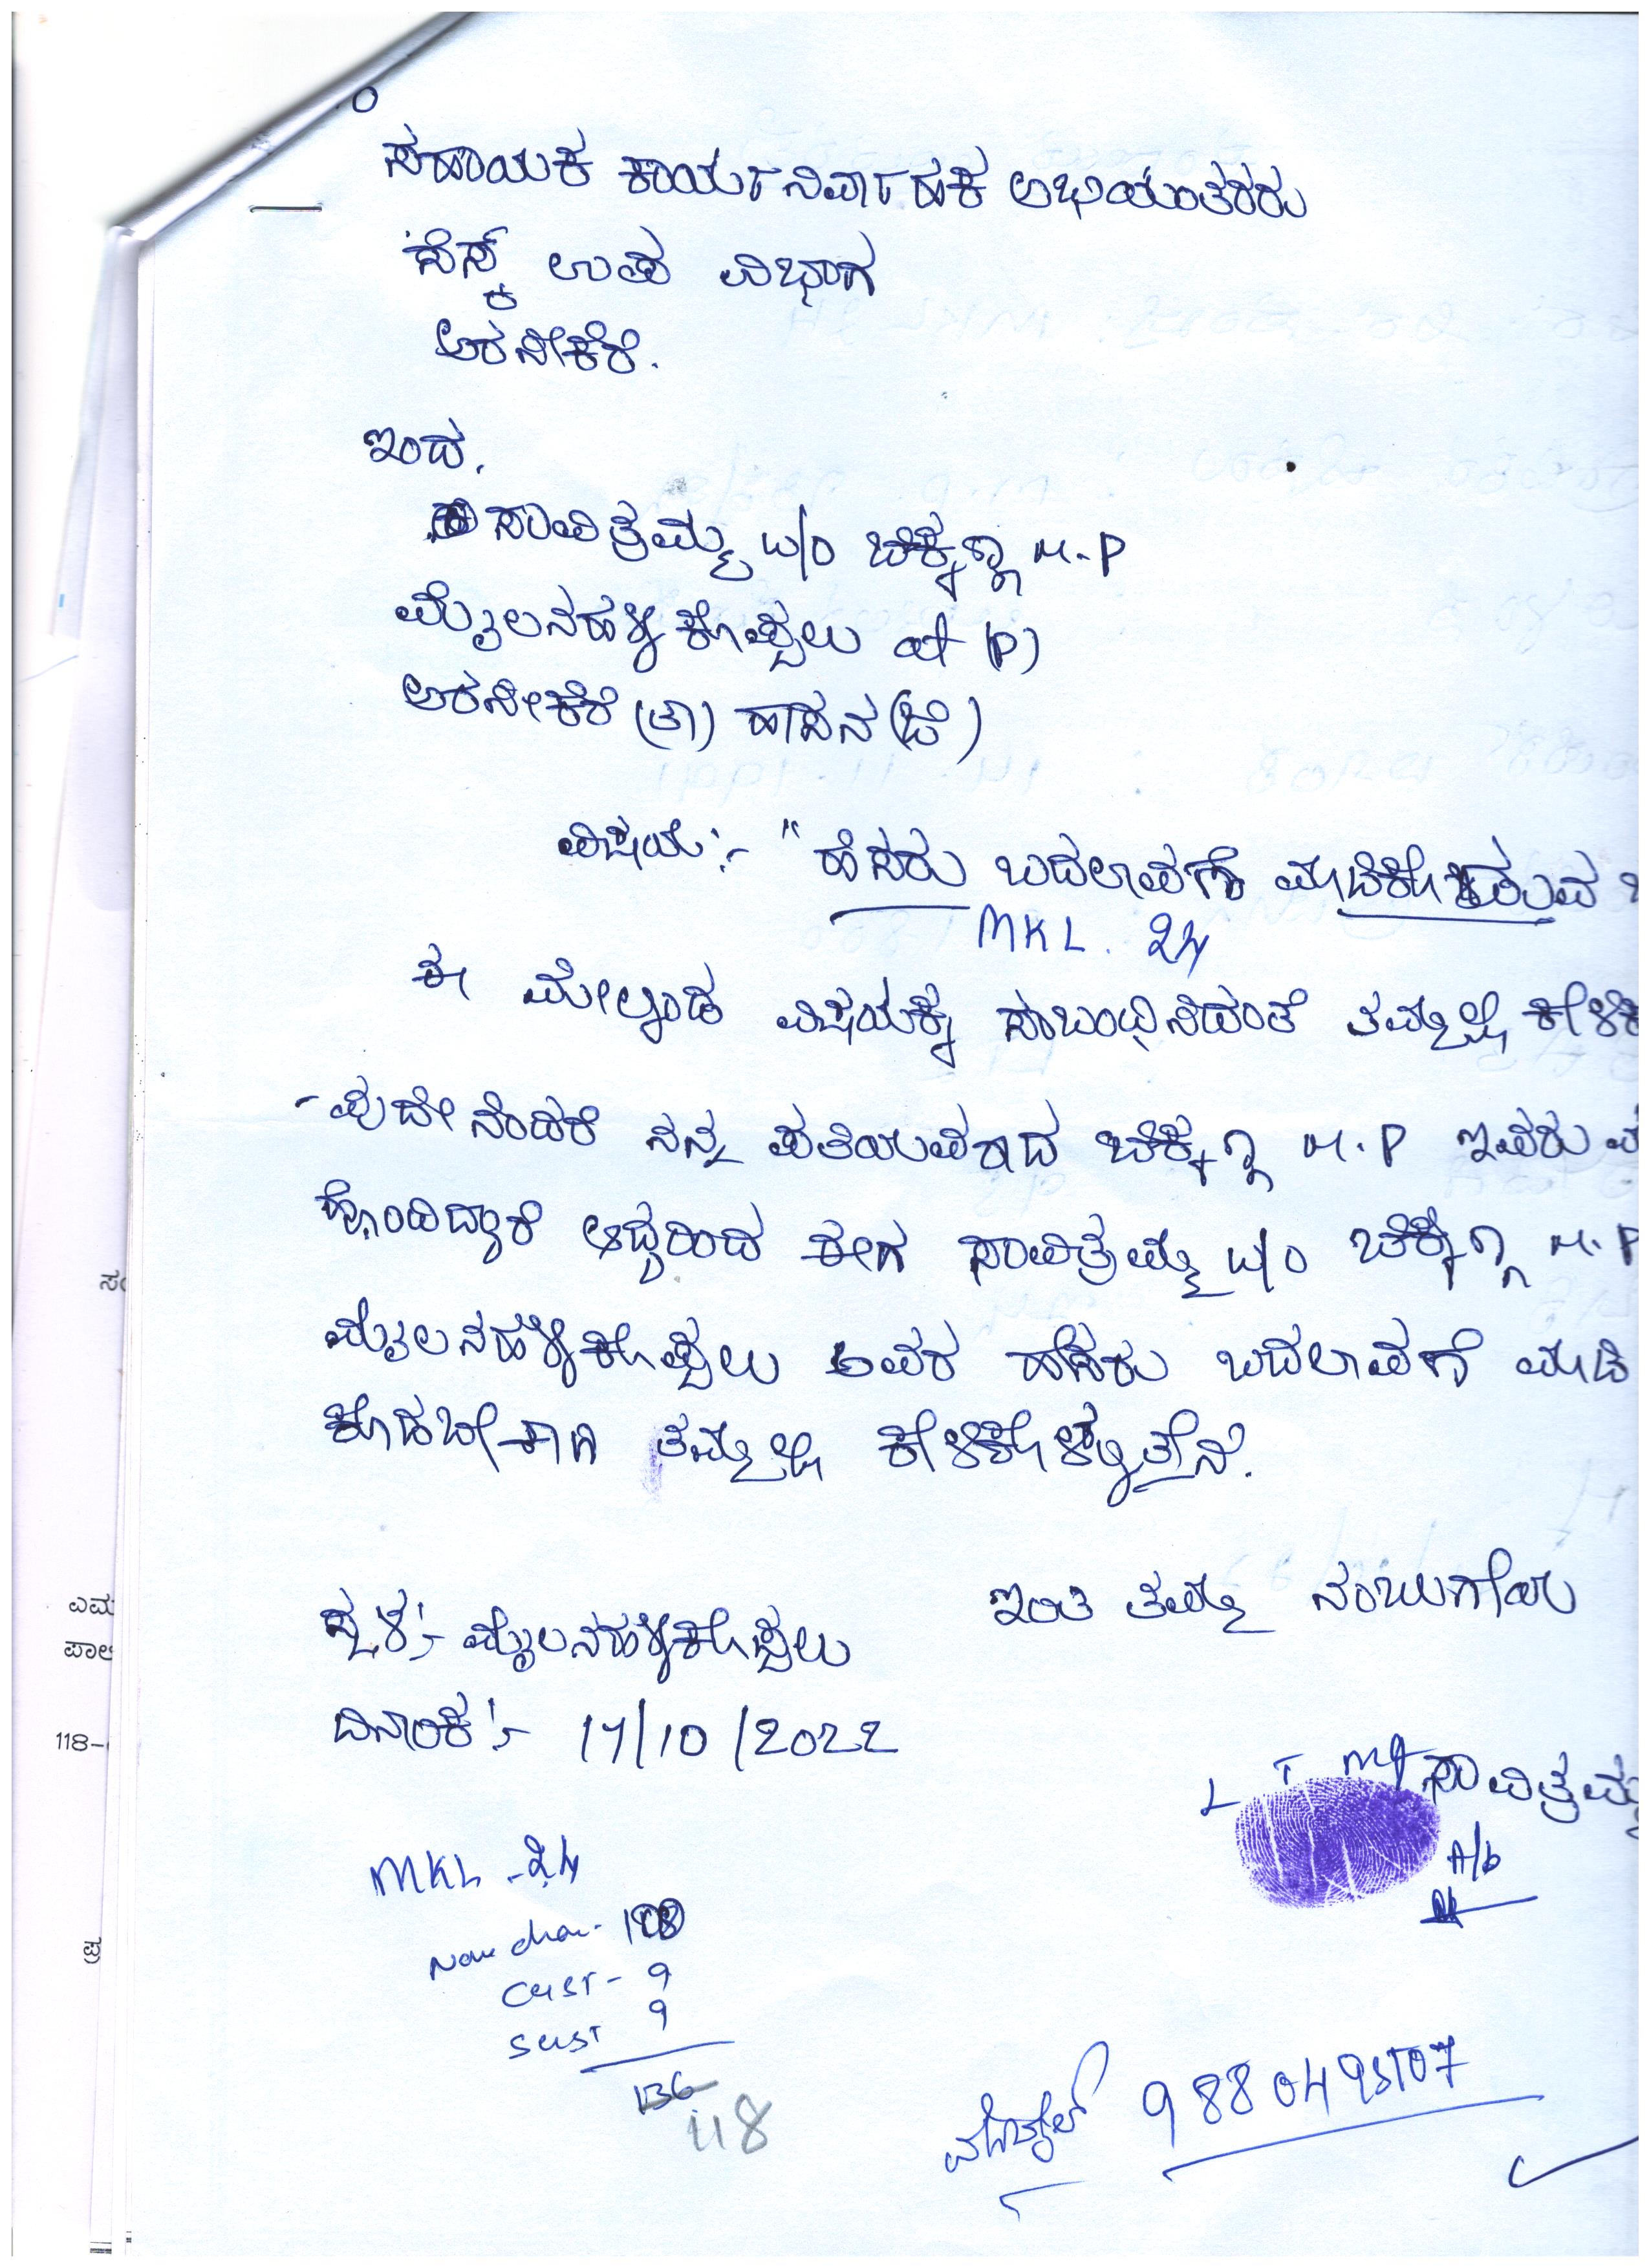 ಸಹಾಯಕ ಕಾರ್ಯನಿರ್ವಾಹಕ ಅಭಿಯಂತರರು
ಸೆಸ್ಕ್ ಉಪ ವಿಭಾಗ
ಅರಸೀಕೆರೆ.
ಇಂದ,
ಸಾವಿತ್ರಮ್ಮ w/o ಚಿಕ್ಕಣ್ಣ M.P
ಮೈಲನಹಳ್ಳಿಕೊಪ್ಪಲು at (P)
ಅರಸೀಕೆರೆ (ತಾ) ಹಾಸನ (ಜಿ)
ವಿಷಯ:- "ಹೆಸರು ಬದಲಾವಣೆ
MKL. 24
ಈ ಮೇಲ್ಕಂಡ ವಿಷಯಕ್ಕೆ ಸಂಬಂಧಿಸಿದಂತೆ ತಮ್ಮಲ್ಲಿ
-ವುದೇನೆಂದರೆ ನನ್ನ ಪತಿಯವರಾದ ಚಿಕ್ಕಣ್ಣ M.P ಇವರು
ಹೊಂದಿದ್ಧಾರೆ ಆದ್ದರಿಂದ ಈಗ ಸಾವಿತ್ರಮ್ಮ w/o ಚಿಕ್ಕಣ್ಣ M.P
ಮೈಲನಹಳ್ಳಿಕೊಪ್ಪಲು ಅವರ ಹೆಸರು ಬದಲಾವಣೆ ಮಾಡಿ
ಕೊಡಬೇಕಾಗಿ ತಮ್ಮಲ್ಲಿ ಕೇಳಿಕೊಳ್ಳುತ್ತೇನೆ.
ಇಂತಿ ತಮ್ಮ ನಂಬುಗೆಯ
ಸ್ಥಳ:- ಮೈಲನಹಳ್ಳಿಕೊಪ್ಪಲು
ದಿನಾಂಕ:- 17/10/2022
L T M of ಸಾವಿತ್ರಮ್ಮ
MKL - 24
A/b
Cust - 9
Sust 9
136
118
ಮೊಬೈಲ್
118-
ಪಾಲ
ಎಮ